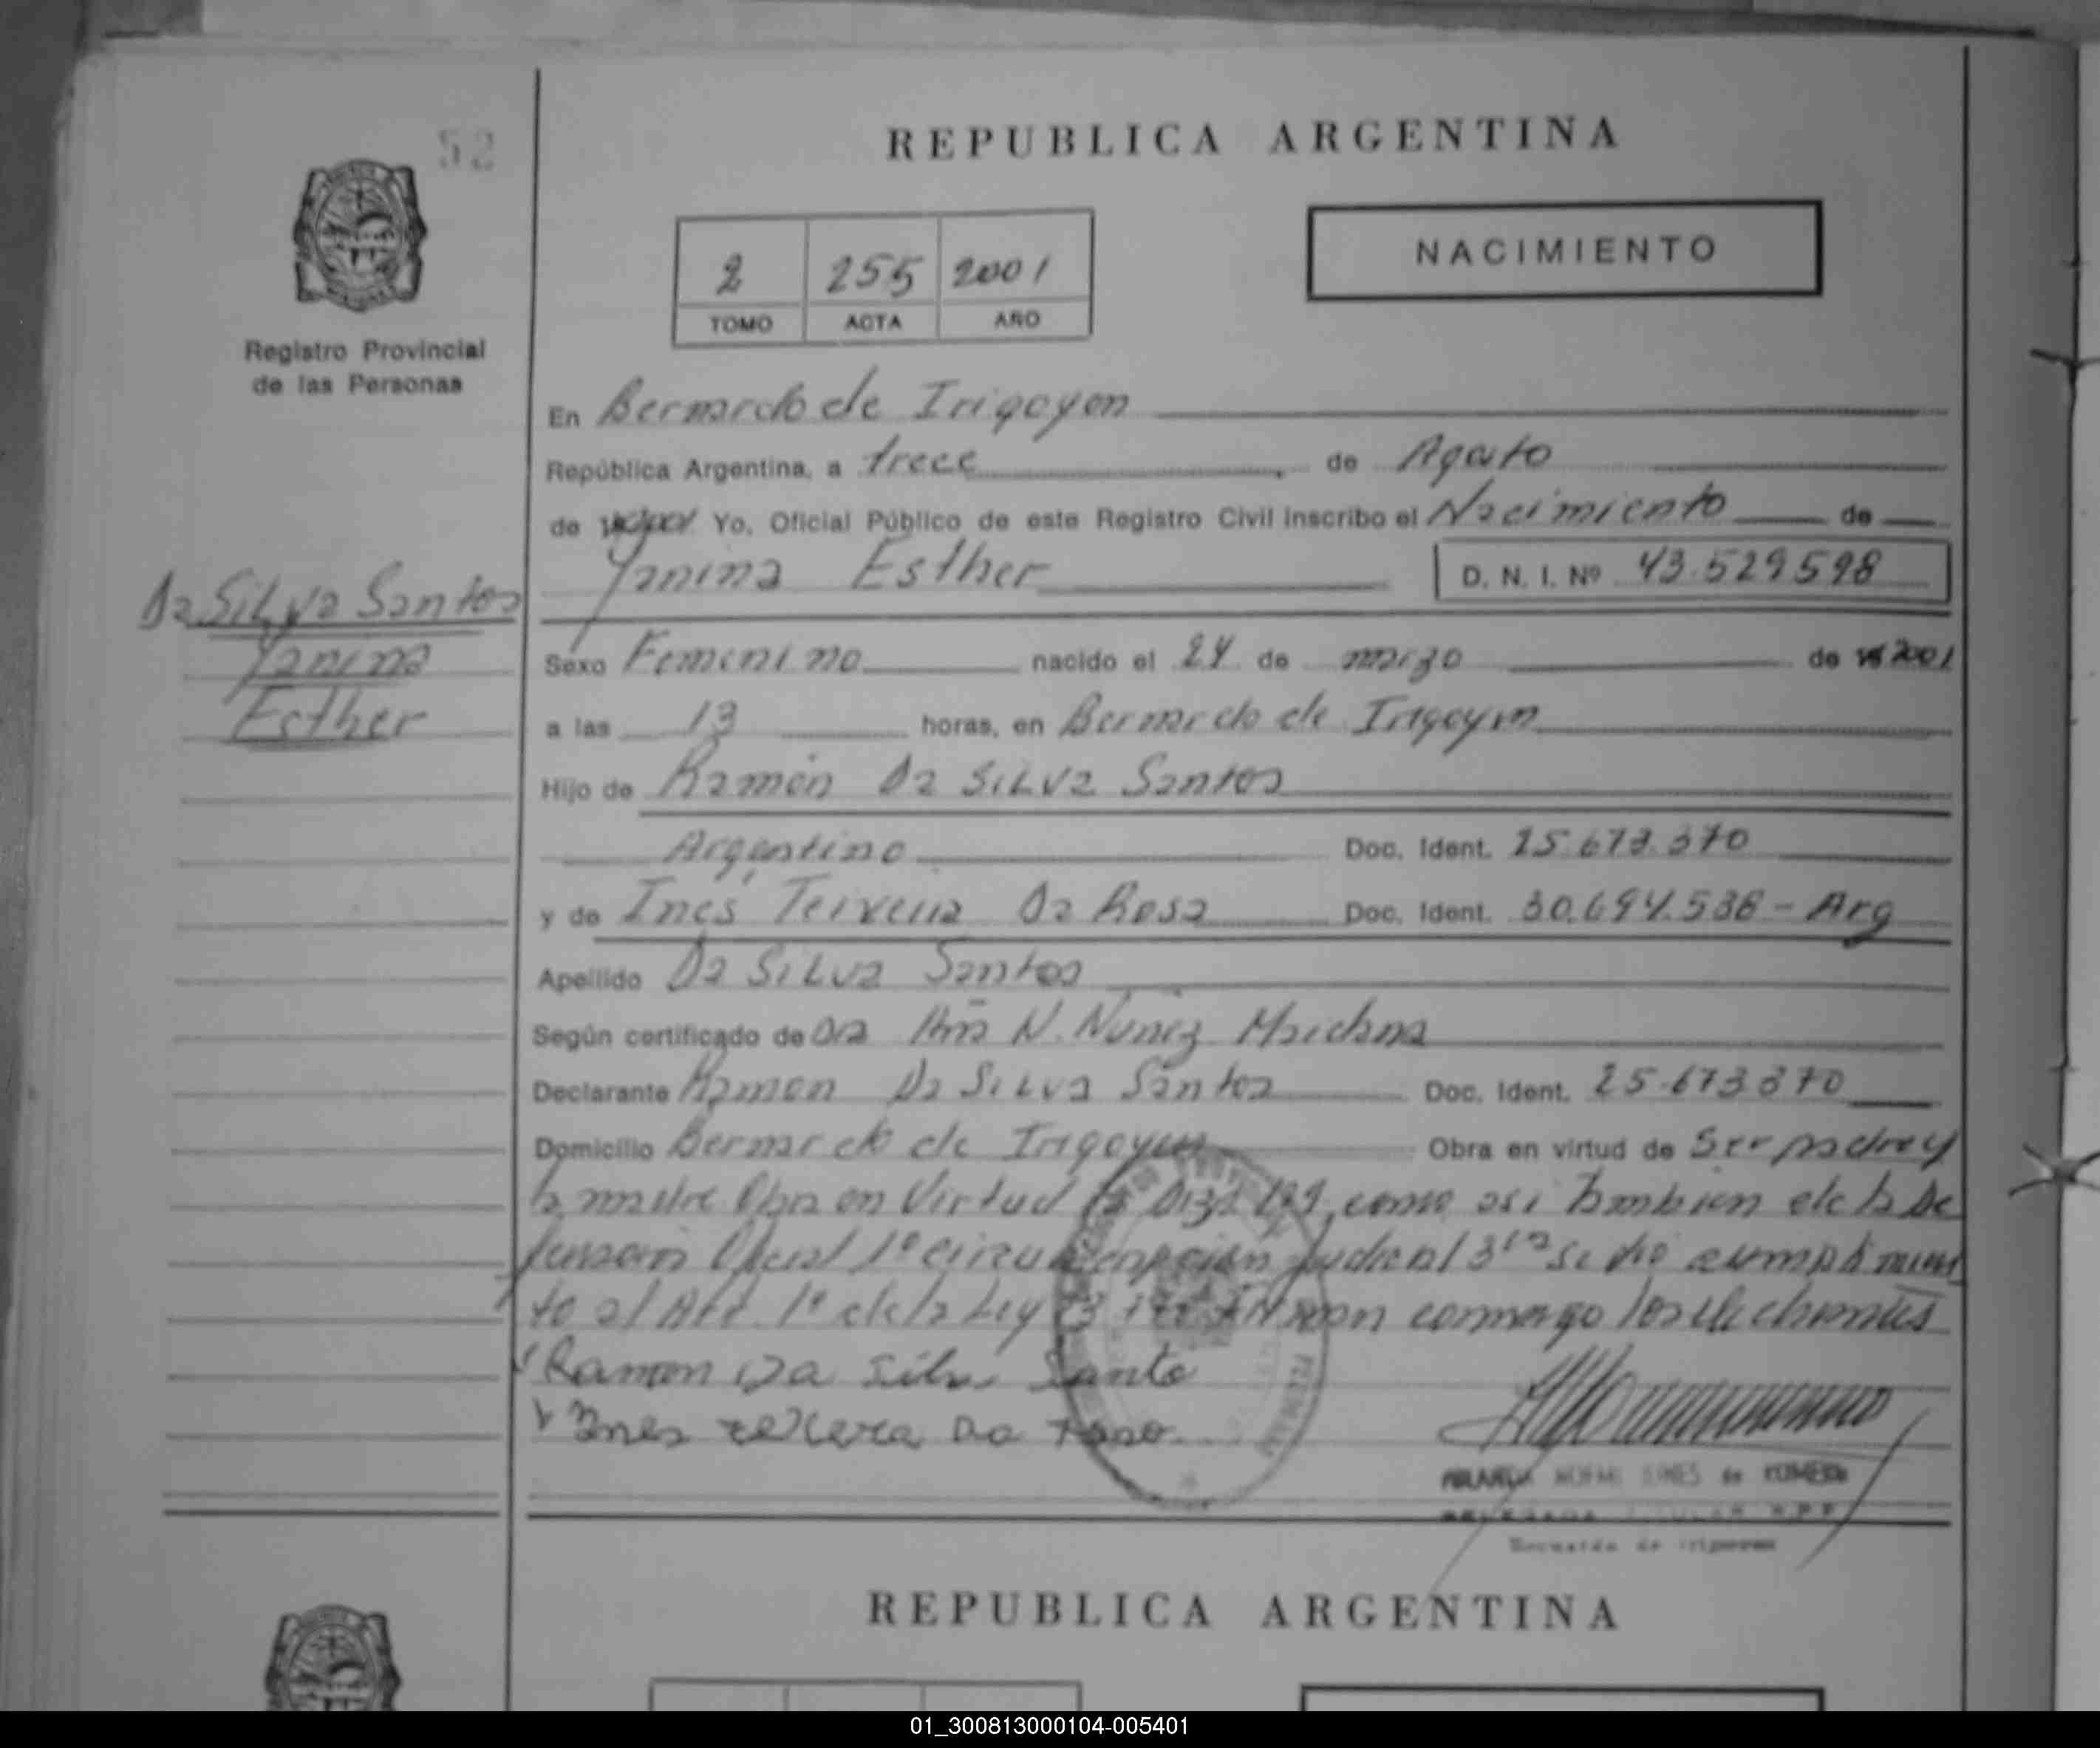 52
REPUBLICA ARGENTINA
NACIMIENTO
2 255 2001
TOMO ACTA AÑO
Registro Provincial
de las Personas
En Bernardo de Irigoyen
República Argentina, a trece de Agosto
de Yo, Oficial Público de este Registro Civil inscribo el Nacimiento de
Yanina Esther D. N. I. Nº 43.529598
Da Silva Santos
Yanina
Esther
Sexo Femenino nacido el 24 de marzo de 2001
a las 13 horas, en Bernardo de Irigoyen
Hijo de Ramón Da Silva Santos
Argentino Doc. Ident. 25.673.370
y de Inés Teixeira Da Rosa Doc. Ident. 30.694.538 - Arg
Apellido Da Silva Santos
Según certificado de Dra N. Nuñez
Declarante Ramon Da Silva Santos Doc. Ident. 25.673370
Domicilio Bernardo de Irigoyen Obra en virtud de Ser padre y
la madre Obra en Virtud como asi Tambien de la De
Oficial 1º Judicial 3ra se dio cumplimien
to al Art. 1º de la Ley conmigo los declarantes
Ramon Da Silva Santo
Ines
de ROMERO
Bernardo de Irigoyen
REPUBLICA ARGENTINA
01_300813000104-005401